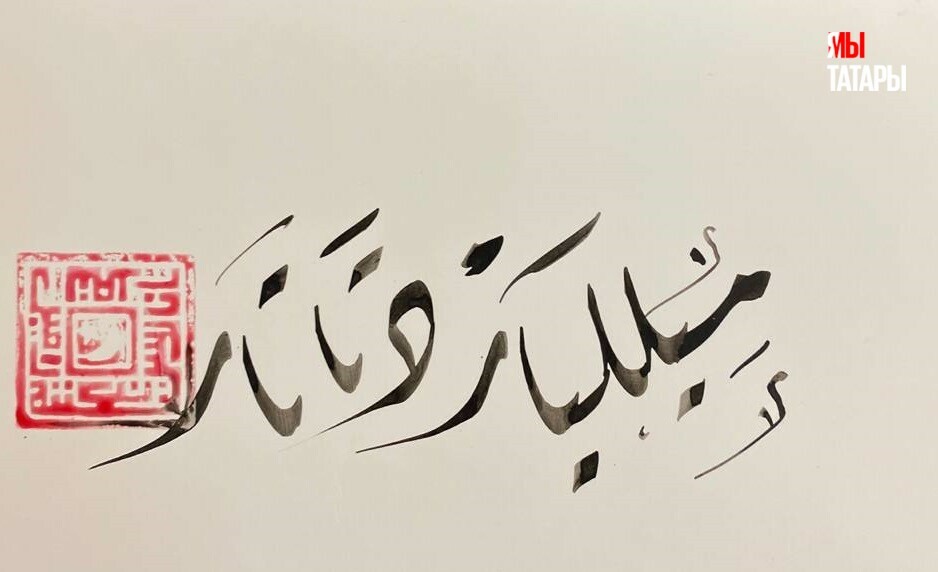 ЯМЫ
ТАТАРЫ
ميلليارد تاتار